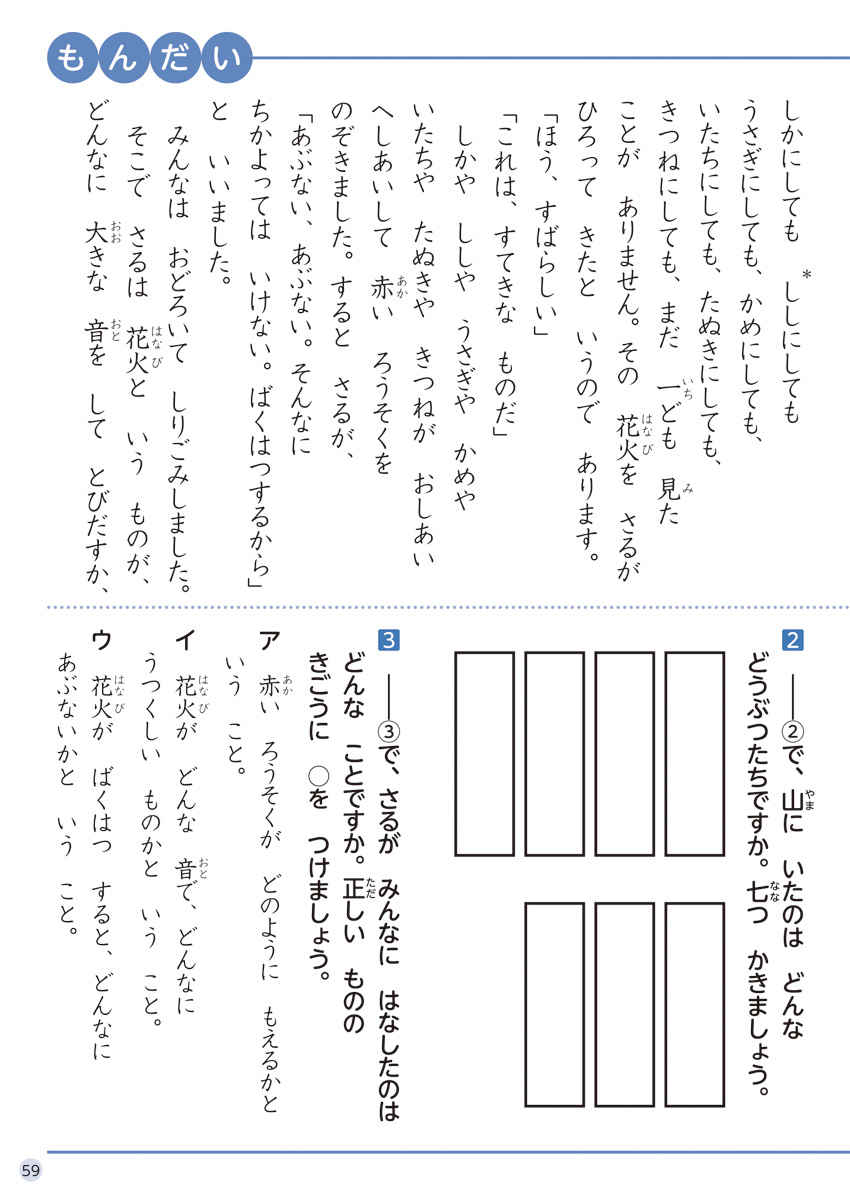 もんだい
しかにしても *ししにしても
うさぎにしても、かめにしても、
いたちにしても、たぬきにしても、
きつねにしても、まだ 一ども 見た
ことが ありません。その 花火を さるが
ひろって きたと いうので あります。
「ほう、すばらしい」
「これは、すてきな ものだ」
しかや ししや うさぎや かめや
いたちや たぬきや きつねが おしあい
へしあいして 赤い ろうそくを
のぞきました。すると さるが、
「あぶない、あぶない。そんなに
ちかよっては いけない。ばくはつするから」
と いいました。
みんなは おどろいて しりごみしました。
そこで さるは 花火と いう ものが、
どんなに 大きな 音を して とびだすか、
2 ――②で、山に いたのは どんな
どうぶつたちですか。七つ かきましょう。
3 ――③で、さるが みんなに はなしたのは
どんな ことですか。正しい ものの
きごうに ○を つけましょう。
ア 赤い ろうそくが どのように もえるかと
いう こと。
イ 花火が どんな 音で、どんなに
うつくしい ものかと いう こと。
ウ 花火が ばくはつ すると、どんなに
あぶないかと いう こと。
59